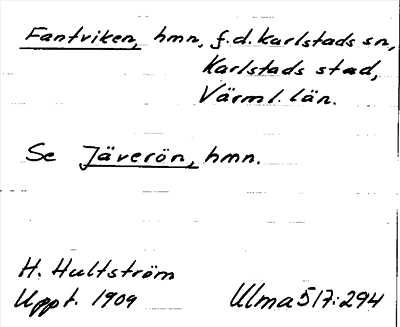 Fantviken, hmn, f.d. Karlstads sn,
Karlstads stad,
Värml. län.
Se Jäverön, hmn.
H. Hultström
Uppt. 1909
Ulma 517:294